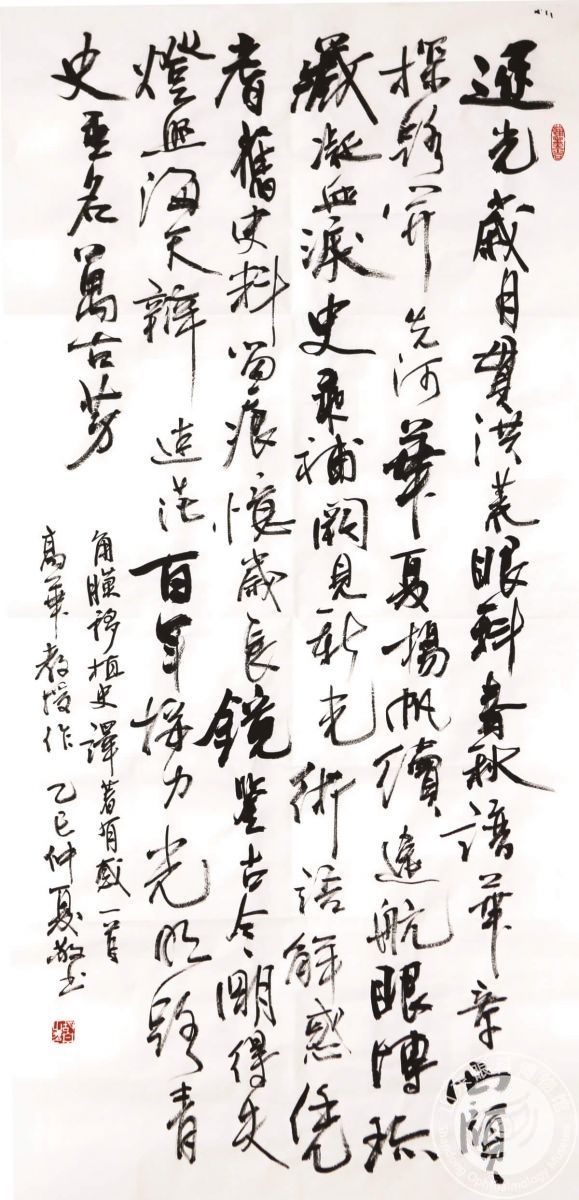 逐光歲月貫洪荒眼科春秋譜華章西
探路開先河華夏揚帆續遠航眼博珍
藏凝血淚史補闕見新光術語解惑凭
耆舊史料留痕憶歲長鏡鑒古今明得失
燈照海天辨迷茫百年接力光明路青
史垂名萬古芳
角膜移植史譯著有感一首
高華教授作 乙巳仲夏敬書
Shandong Ophthalmology Museum